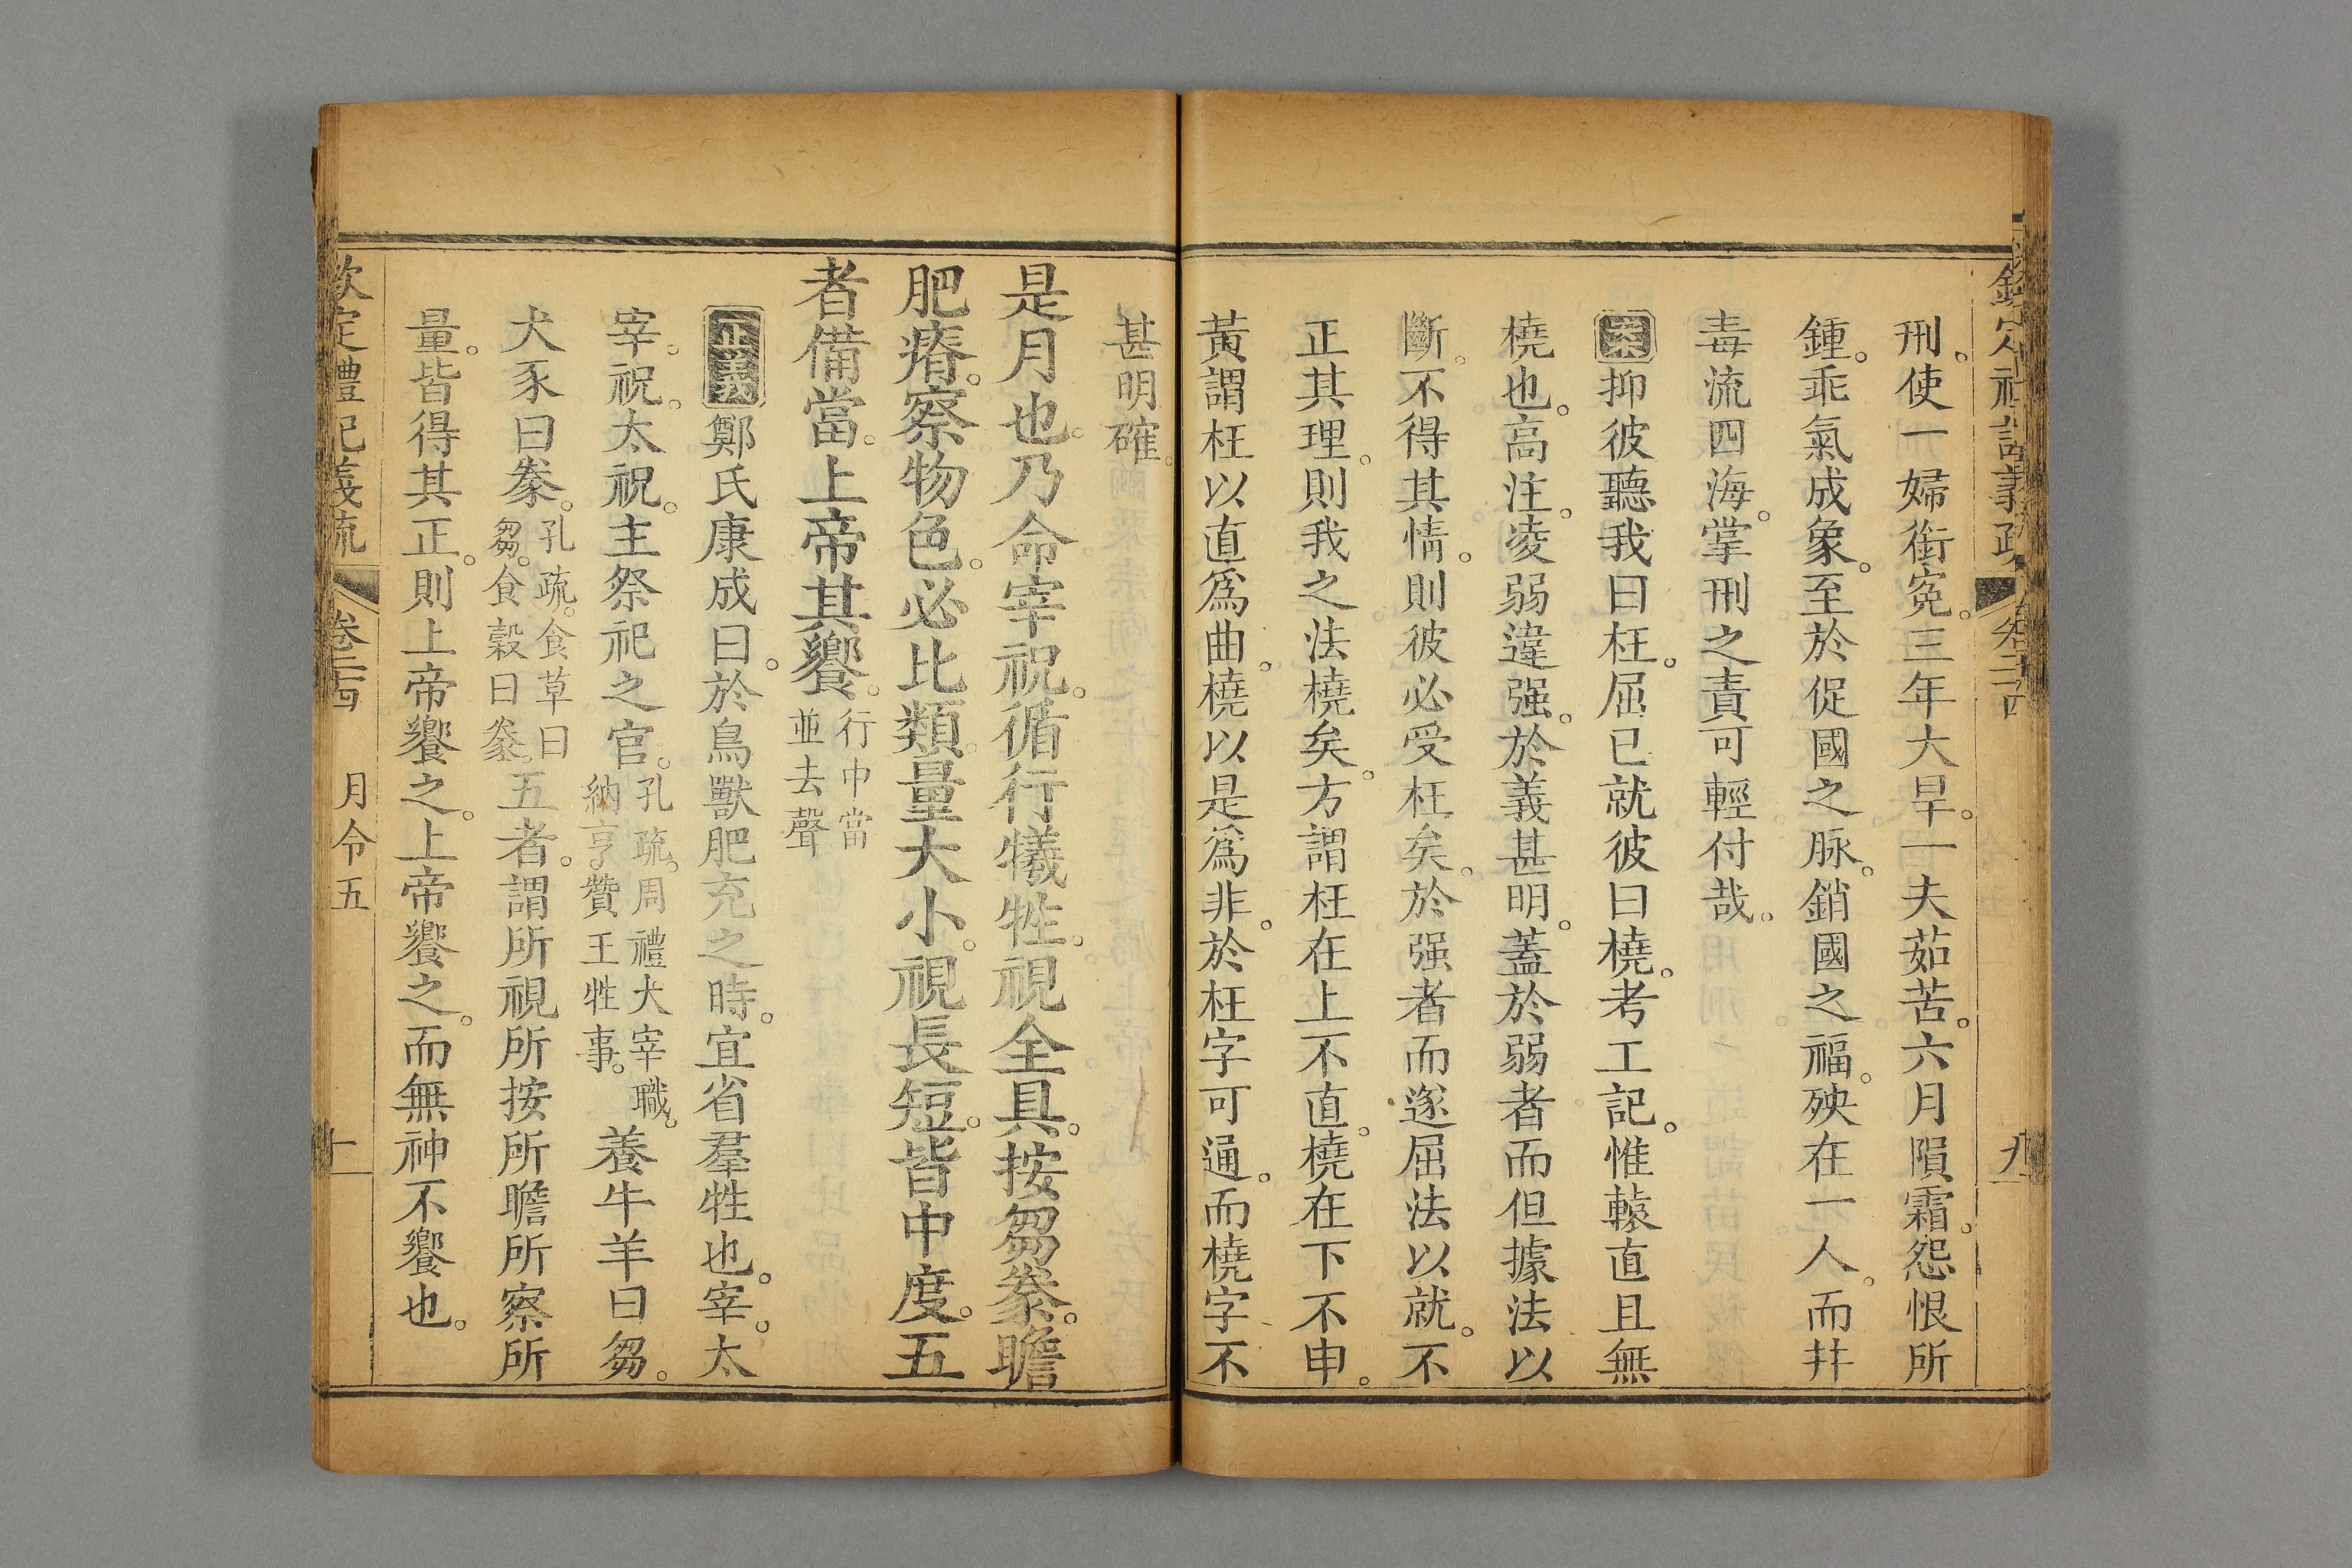 刑。使一婦銜冤。三年大旱。一夫茹苦。六月隕霜。怨恨所
鍾。乖氣成象。至於促國之脉。銷國之福。殃在一人。而幷
毒流四海。掌刑之責可輕付哉。
案抑彼聽我曰枉。屈已就彼曰橈。考工記。惟轅直且無
橈也。高注。凌弱違强。於義甚明。蓋於弱者而但據法以
斷。不得其情。則彼必受枉矣。於强者而遂屈法以就。不
正其理。則我之法橈矣。方謂枉在上不直。橈在下不申。
黃謂枉以直爲曲。橈以是爲非。於枉字可通。而橈字不
甚明確。
是月也。乃命宰祝。循行犧牲。視全具。按芻豢。瞻
肥瘠。察物色。必比類。量大小。視長短。皆中度。五
者備當。上帝其饗。行中當
並去聲
正義鄭氏康成曰。於鳥獸肥充之時。宜省羣牲也。宰。太
宰。祝。太祝。主祭祀之官。孔疏。周禮大宰職。
納亨。贊王牲事。養牛羊曰芻。
犬豕曰豢。孔疏。食草曰
芻。食穀曰豢。五者。謂所視所按所瞻所察所
量。皆得其正。則上帝饗之。上帝饗之。而無神不饗也。
欽定禮記義疏 卷二十四 月令五 十